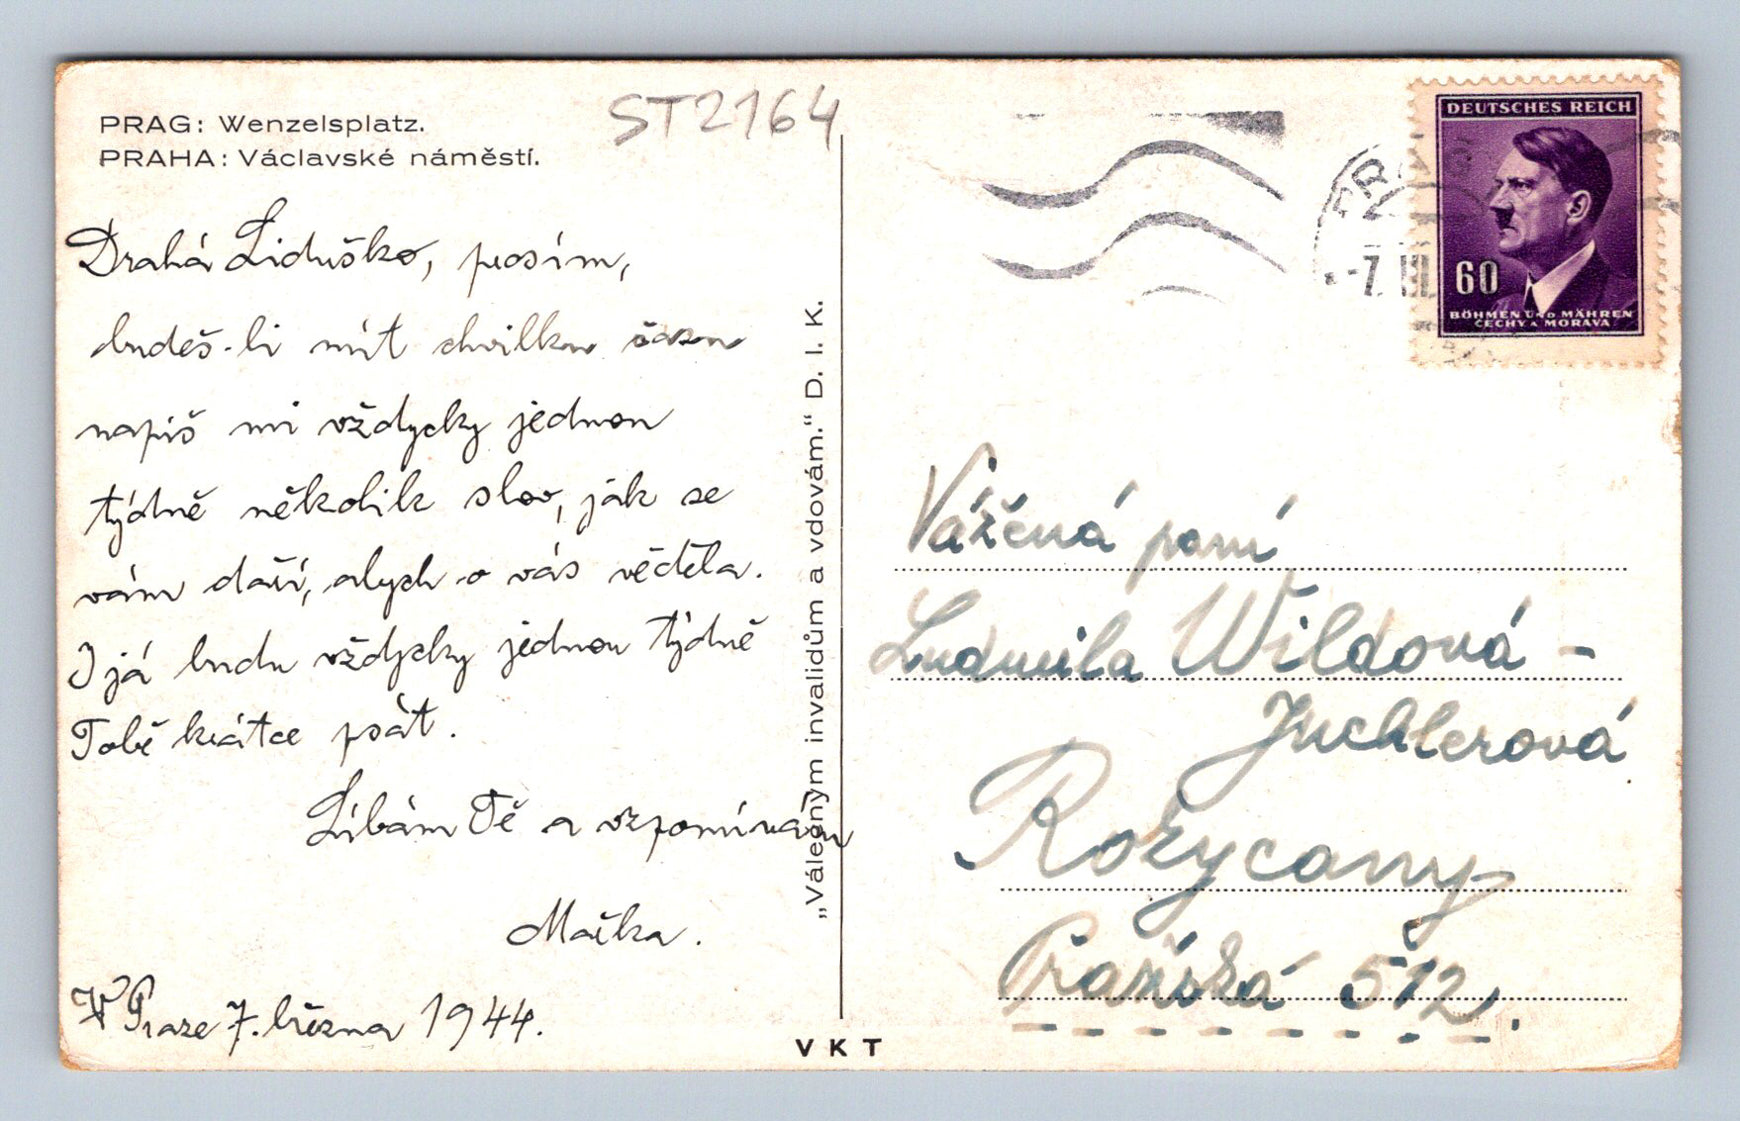 PRAG: Wenzelsplatz.
PRAHA: Václavské náměstí.
ST2164
Drahá Liduško, prosím,
budeš-li mít chvilku času
napiš mi vždycky jednou
týdně několik slov, jak se
vám daří, abych o vás věděla.
I já budu vždycky jednou týdně
Tobě krátce psát.
Líbám Tě a vzpomínám
Mařka.
V Praze 7. března 1944.
„Válečným invalidům a vdovám." D. I. K.
VKT
PRA
-7. III
DEUTSCHES REICH
60
BÖHMEN UND MÄHREN
ČECHY A MORAVA
Vážená paní
Ludmila Wildová -
Juchlerová
Rokycany
Pražská 512.